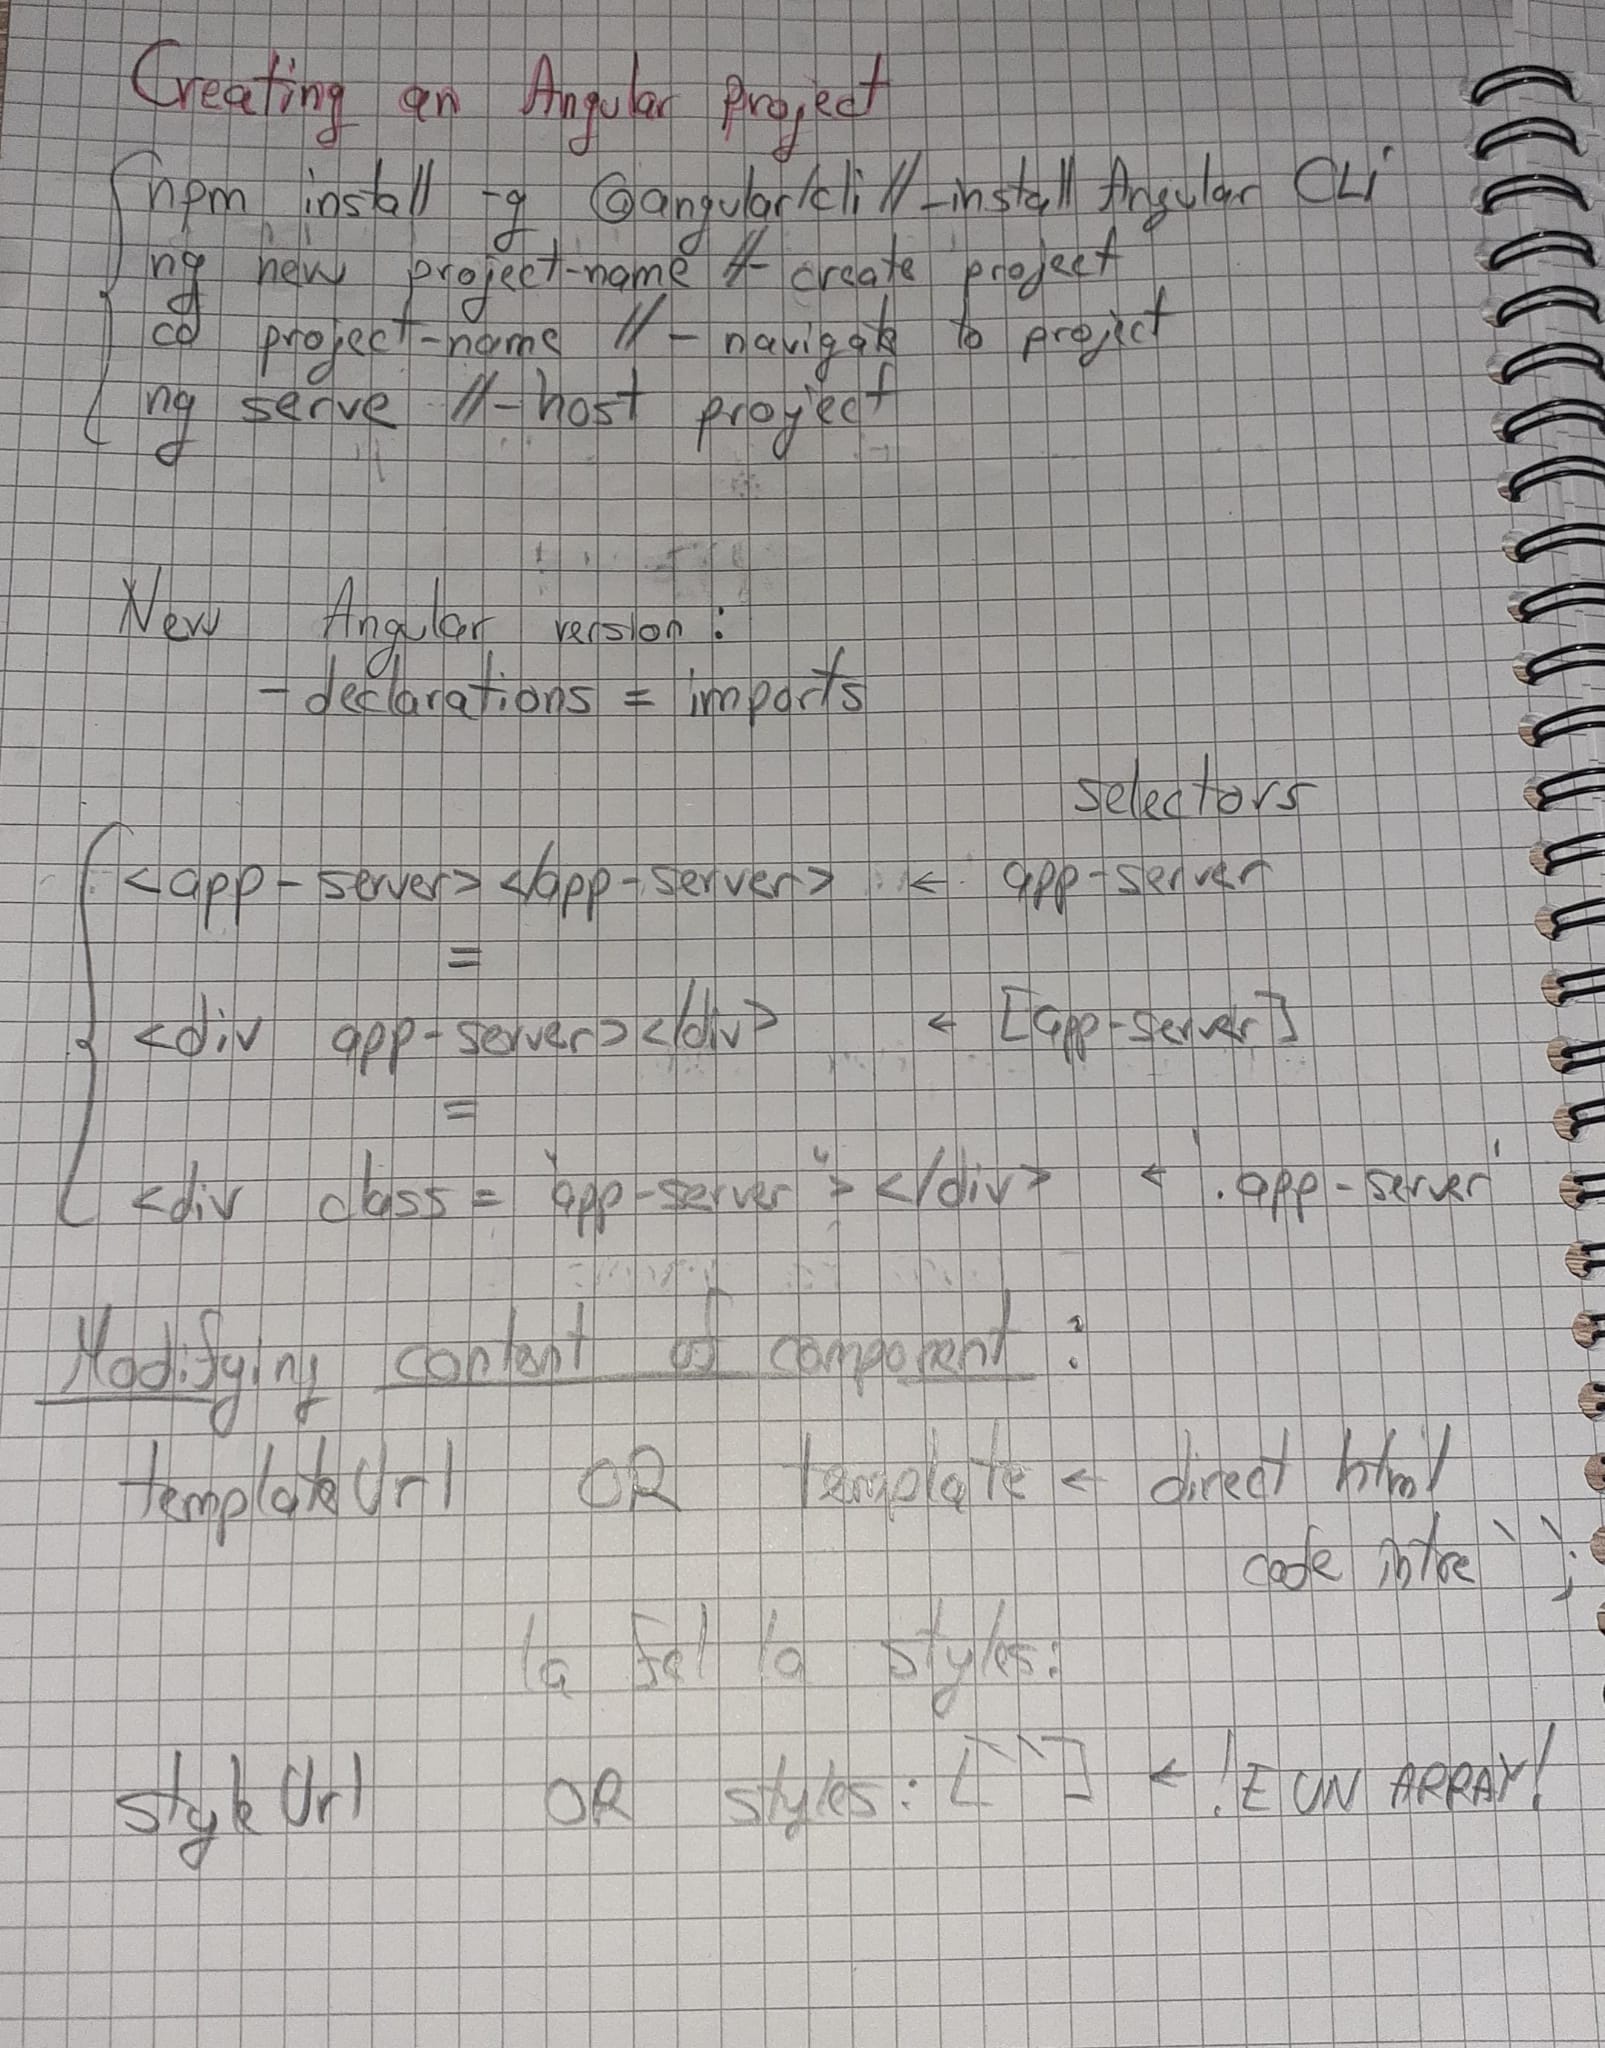 Creating an Angular Project
npm install -g @angular/cli // - install Angular CLi
ng new project-name // - create project
cd project-name // - navigate to project
ng serve // - host proyect
New Angular version :
- declarations = imports
selectors
<app-server></app-server> ← app-server
=
<div app-server></div> ← [app-server]
=
<div class = "app-server"></div> ← '.app-server'
Modifying content of component :
templateUrl OR template ← direct html
code intre ` ` ;
la fel la styles:
styleUrl OR styles: [` `] ← !E UN ARRAY!